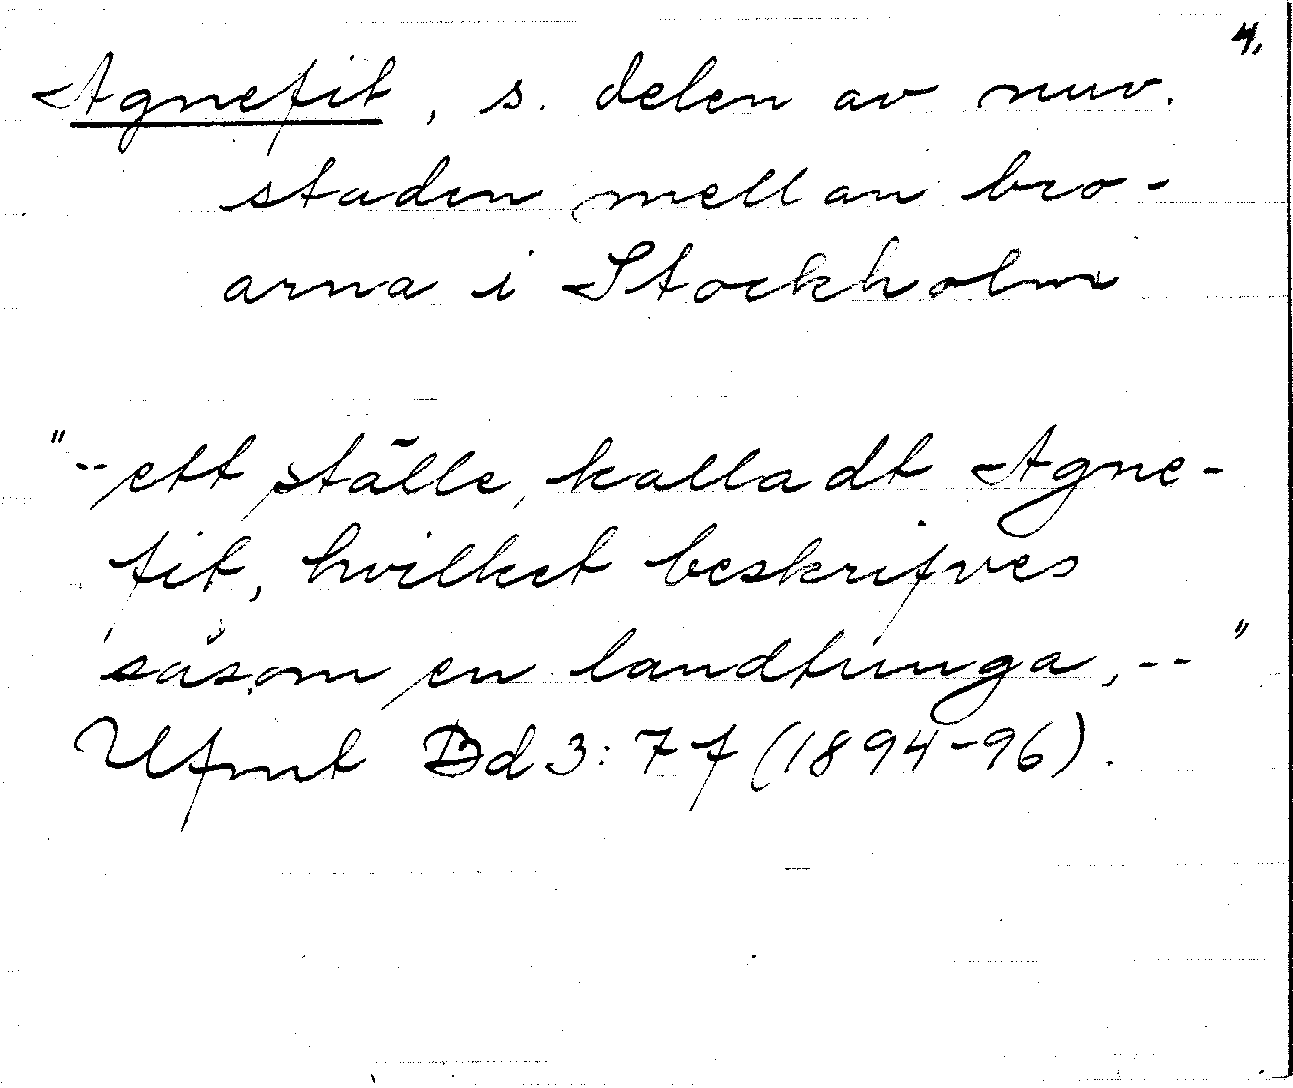 4.
Agnefit, s. delen av nuv.
staden mellan bro-
arna i Stockholm
"-- ett ställe, kalladt Agne-
fit, hvilket beskrifves
såsom en landtunga, -- "
Ufmt Bd 3: 7 f (1894-96).